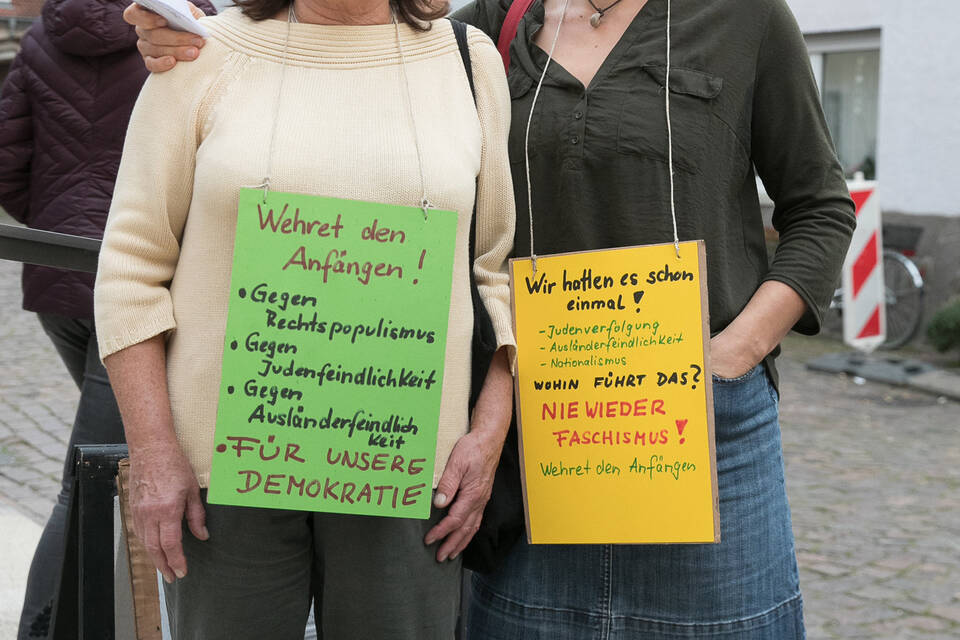 Wehret den
Anfängen!
• Gegen
Rechtspopulismus
• Gegen
Judenfeindlichkeit
• Gegen
Ausländerfeindlich
keit
• FÜR UNSERE
DEMOKRATIE
Wir hatten es schon
einmal!
- Judenverfolgung
- Ausländerfeindlichkeit
- Nationalismus
WOHIN FÜHRT DAS?
NIE WIEDER
FASCHISMUS!
Wehret den Anfängen